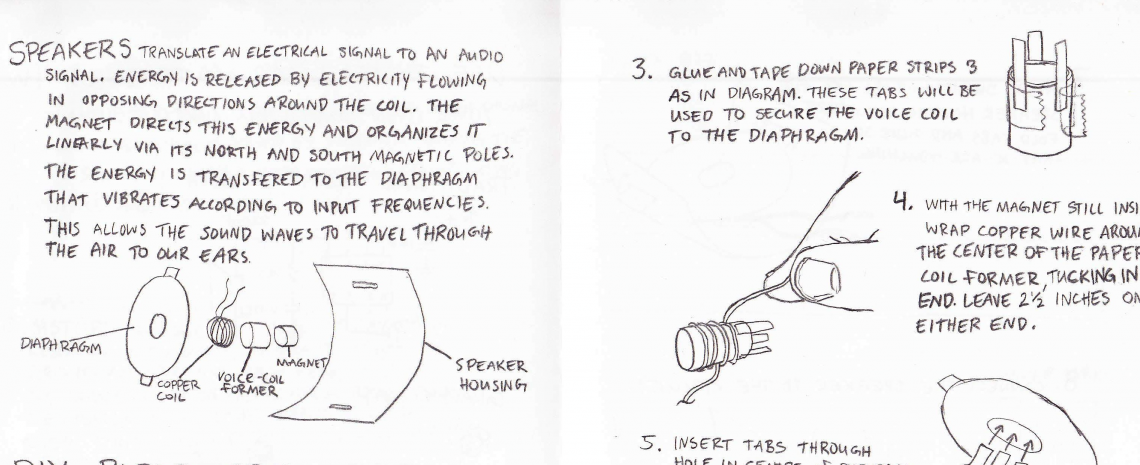 SPEAKERS TRANSLATE AN ELECTRICAL SIGNAL TO AN AUDIO
SIGNAL. ENERGY IS RELEASED BY ELECTRICITY FLOWING
IN OPPOSING DIRECTIONS AROUND THE COIL. THE
MAGNET DIRECTS THIS ENERGY AND ORGANIZES IT
LINEARLY VIA ITS NORTH AND SOUTH MAGNETIC POLES.
THE ENERGY IS TRANSFERED TO THE DIAPHRAGM
THAT VIBRATES ACCORDING TO INPUT FREQUENCIES.
THIS ALLOWS THE SOUND WAVES TO TRAVEL THROUGH
THE AIR TO OUR EARS.
DIAPHRAGM
COPPER
COIL
VOICE-COIL
FORMER
MAGNET
SPEAKER
HOUSING
DIY
3. GLUE AND TAPE DOWN PAPER STRIPS 3
AS IN DIAGRAM. THESE TABS WILL BE
USED TO SECURE THE VOICE COIL
TO THE DIAPHRAGM.
4. WITH THE MAGNET STILL INSI
WRAP COPPER WIRE AROU
THE CENTER OF THE PAPER
COIL FORMER, TUCKING IN
END. LEAVE 2½ INCHES ON
EITHER END.
5. INSERT TABS THROUGH
HOLE IN